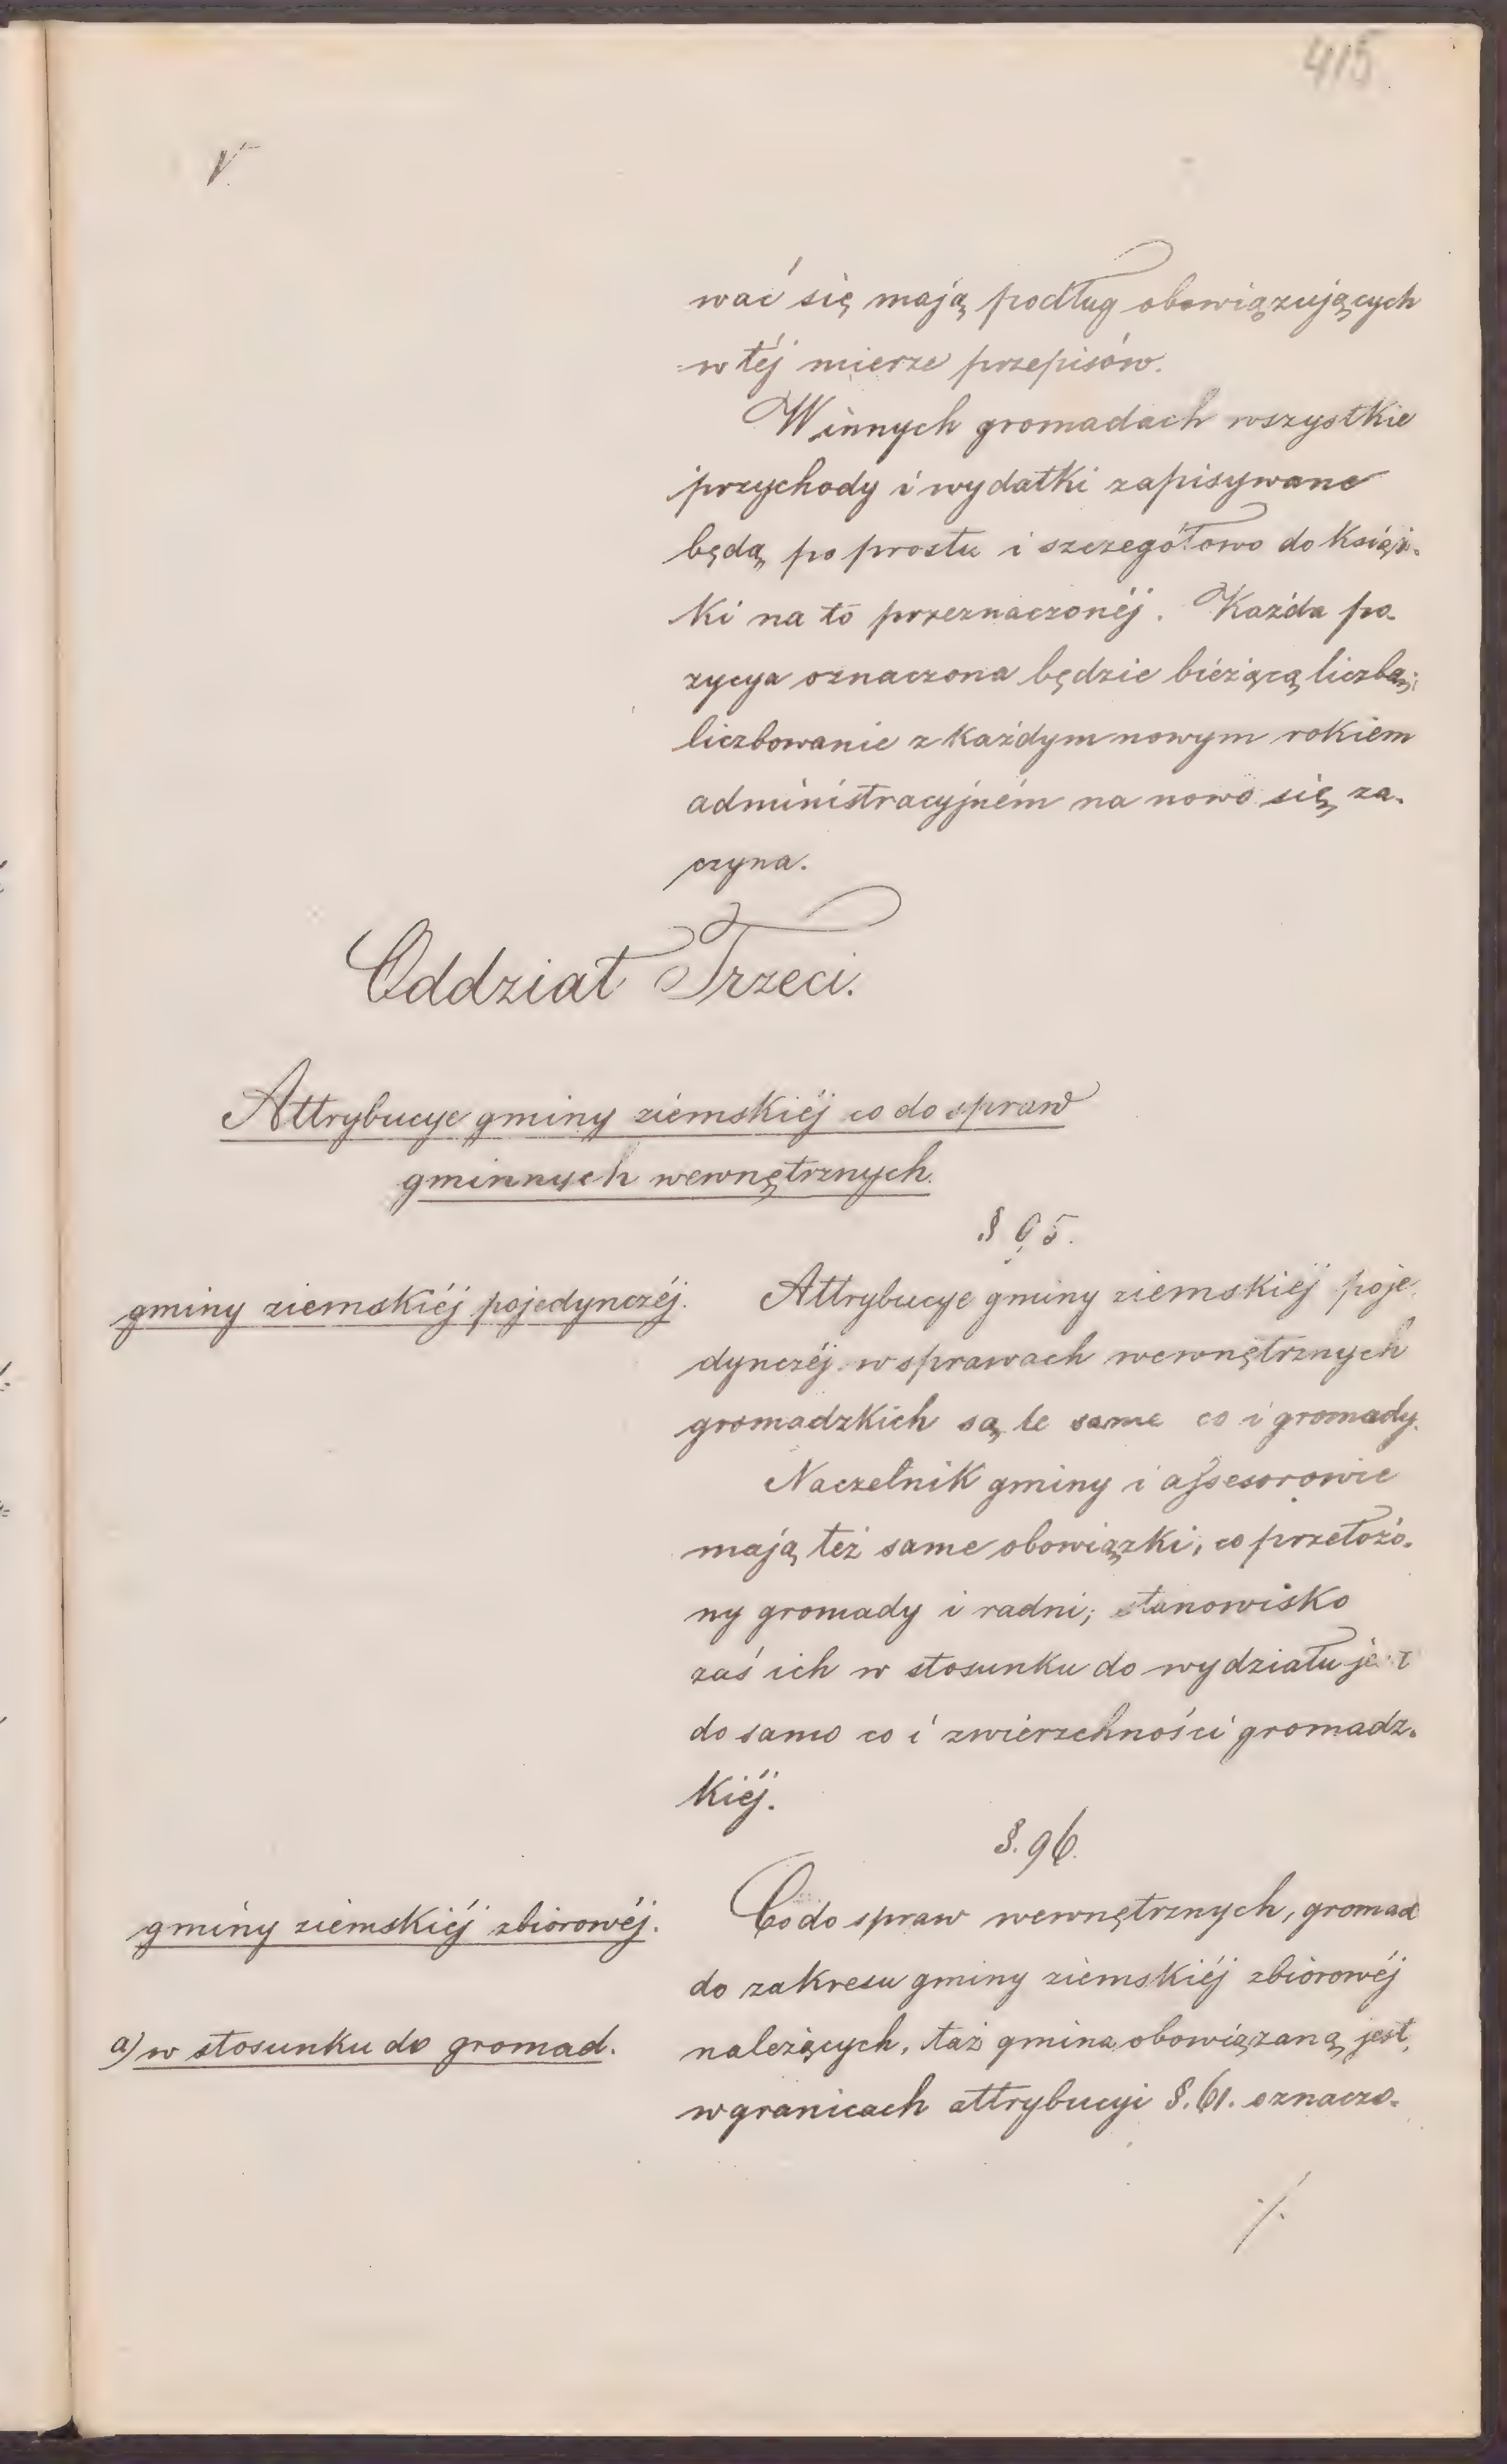 415
V.
wać się mają podług obowiązujących
w téj mierze przepisów.
W innych gromadach wszystkie
przychody i wydatki zapisywane
będą po prostu i szczegółowo do Książ-
ki na to przeznaczonéj. Każda po-
zycya oznaczona będzie bieżącą liczbą;
liczbowanie z każdym nowym rokiem
administracyjném na nowo się za-
czyna.
Oddział Trzeci.
Attrybucye gminy ziemskiéj co do spraw
gminnych wewnętrznych.
§ 95.
gminy ziemskiéj pojedynczéj.
Attrybucye gminy ziemskiéj poje-
dynczéj w sprawach wewnętrznych
gromadzkich są te same co i gromady.
Naczelnik gminy i assesorowie
mają też same obowiązki, co przełożo-
ny gromady i radni; stanowisko
zaś ich w stosunku do wydziału jest
do samo co i zwierzchności gromadz-
kiéj.
§. 96.
gminy ziemskiéj zbiorowéj.
Co do spraw wewnętrznych, gromad
do zakresu gminy ziemskiéj zbiorowéj
a) w stosunku do gromad.
należących, taż gmina obowiązaną jest,
w granicach attrybucyi §. 61. oznaczo-
./.